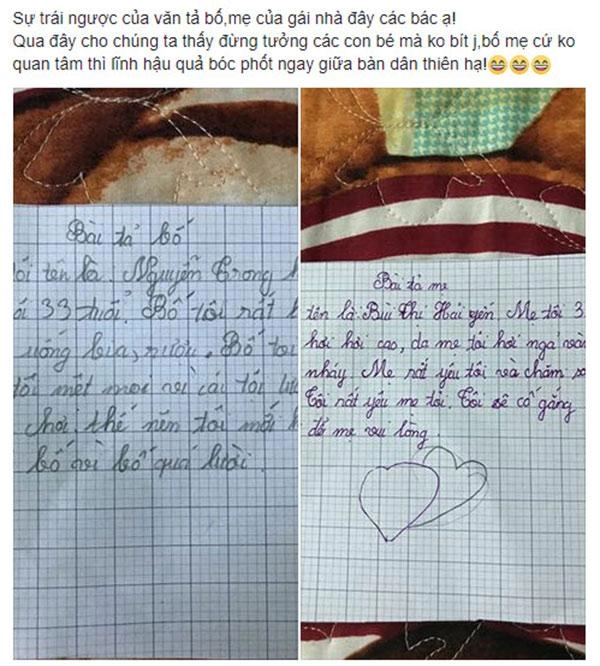 Sự trái ngược của văn tả bố,mẹ của gái nhà đây các bác ạ!
Qua đây cho chúng ta thấy đừng tưởng các con bé mà ko bít j,bố mẹ cứ ko
quan tâm thì lĩnh hậu quả bóc phốt ngay giữa bàn dân thiên hạ!😄😄😄
Bài tả bố
tên là. Nguyễn Trong
33 tuổi. Bố tôi rất
uống bia, rượu. Bố toi
tối mệt mỏi vì cái tối
chơi. thế nên tôi mới
bố vì bố quá lười.
Bài tả mẹ
tên là Bùi Thi Hai yến. Mẹ tôi 3
hơi hơi cao, da mẹ tôi hơi ngả
nháy. Mẹ rất yêu tôi và chăm
Tôi rất yêu mẹ tôi. Tôi sẽ cố gắng
để mẹ vui lòng.